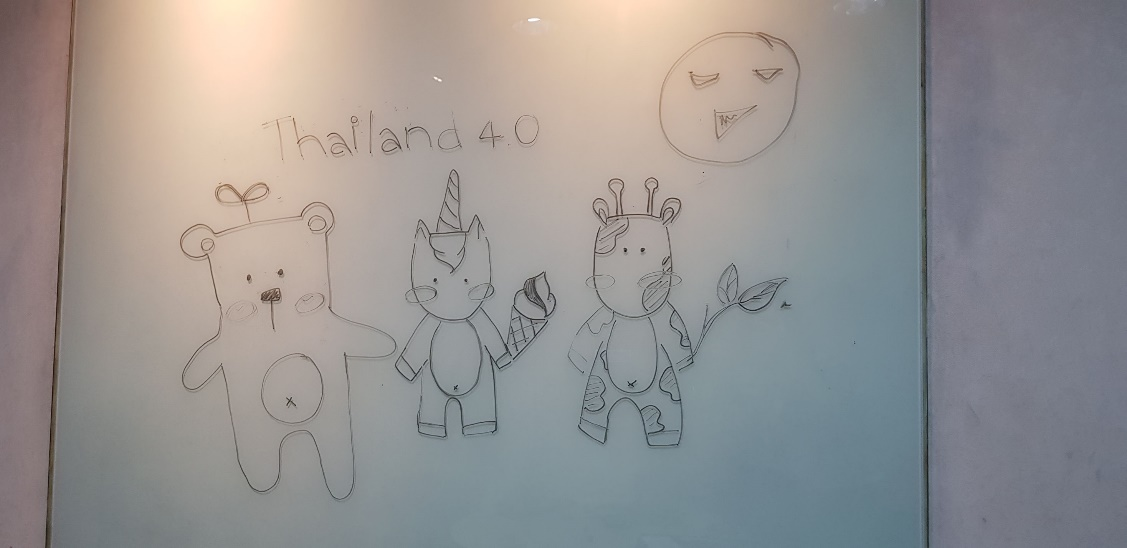 Thailand 4.0